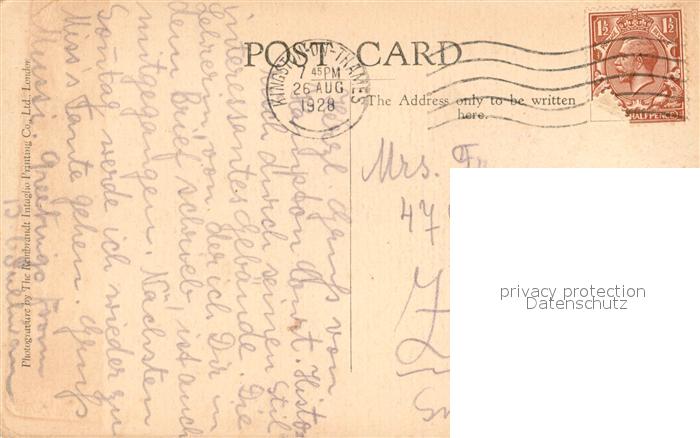 POST CARD
KINGSTON-ON-THAMES
7 45 PM
26 AUG
1928
1½ 1½
HALFPENCE
The Address only to be written
here.
Mrs.
47
privacy protection
Datenschutz
Herzl. Gruß vom
Hampton Court. Histo
und durch seinen Stil
interessantes Gebäude. Die
Lehrerin, von der ich Dir in
dem Brief schrieb, ist auch
mitgegangen. Nächsten
Sonntag werde ich wieder zu
Miss s Tante gehen. Gruß
Greetings from
Photogravure by The Rembrandt Intaglio Printing Co., Ltd., London.